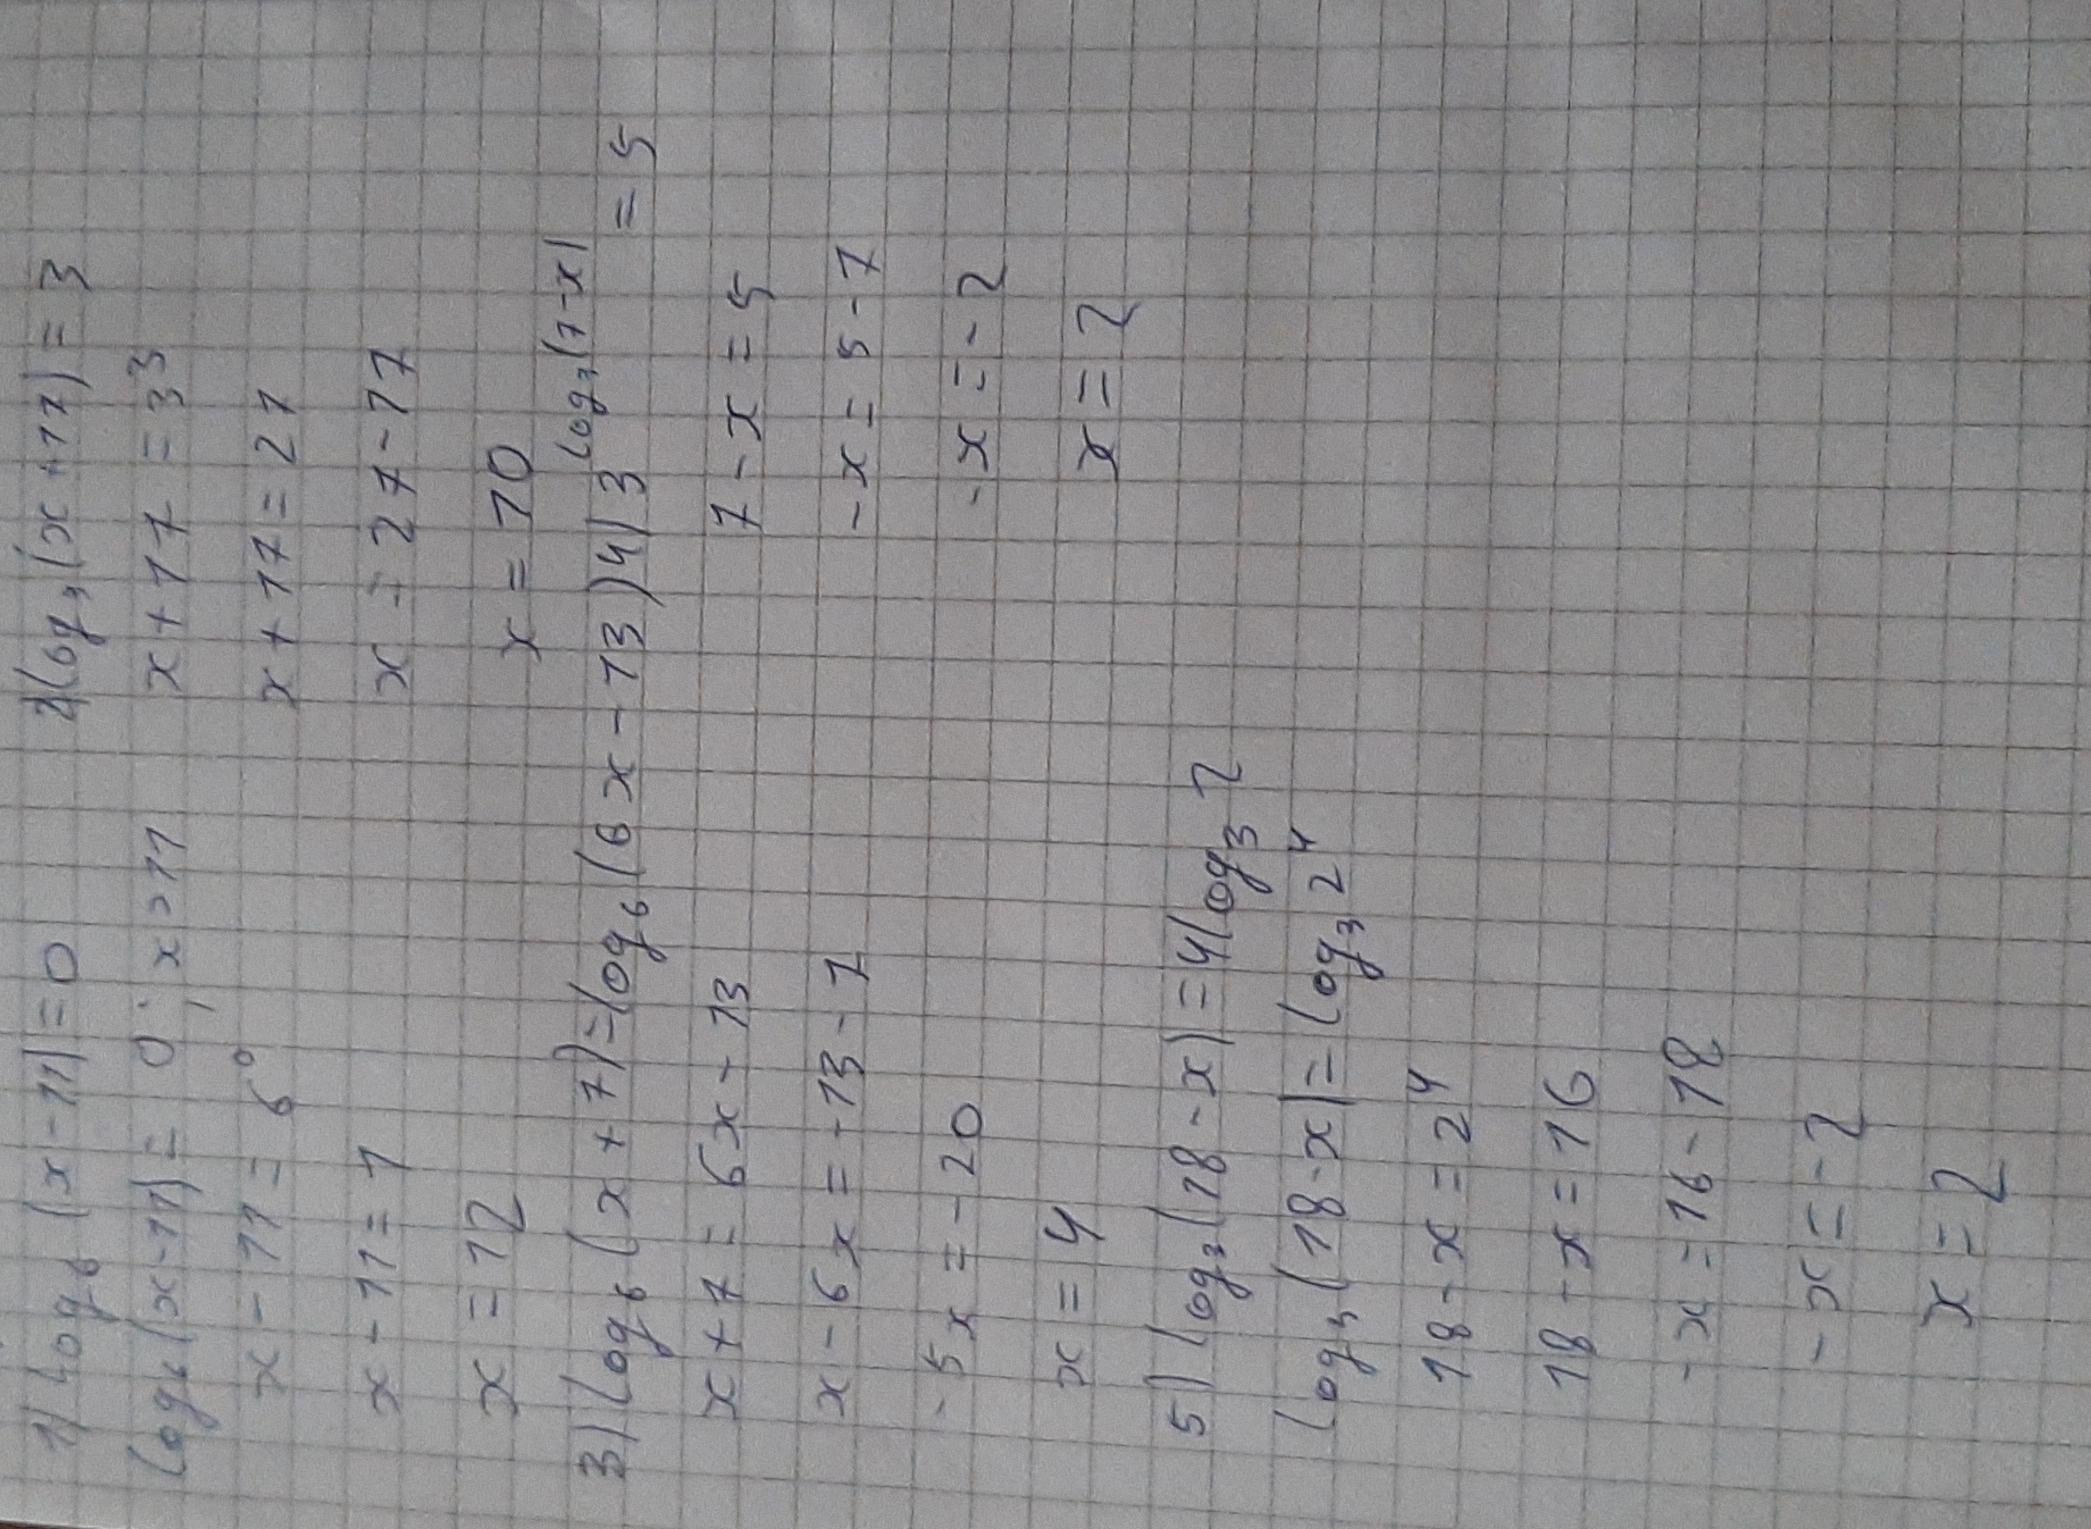 1) log₆ (x - 11) = 0
log₆ (x - 11) = 0 ; x > 11
x - 11 = 6⁰
x - 11 = 1
x = 12
2) log₃ (x + 17) = 3
x + 17 = 3³
x + 17 = 27
x = 27 - 17
x = 10
3) log₆ (x + 7) = log₆ (6x - 13)
x + 7 = 6x - 13
x - 6x = - 13 - 7
- 5x = - 20
x = 4
4) 3^log₃(7 - x) = 5
7 - x = 5
- x = 5 - 7
- x = - 2
x = 2
5) log₃ (18 - x) = 4 log₃ 2
log₃ (18 - x) = log₃ 2⁴
18 - x = 2⁴
18 - x = 16
- x = 16 - 18
- x = - 2
x = 2